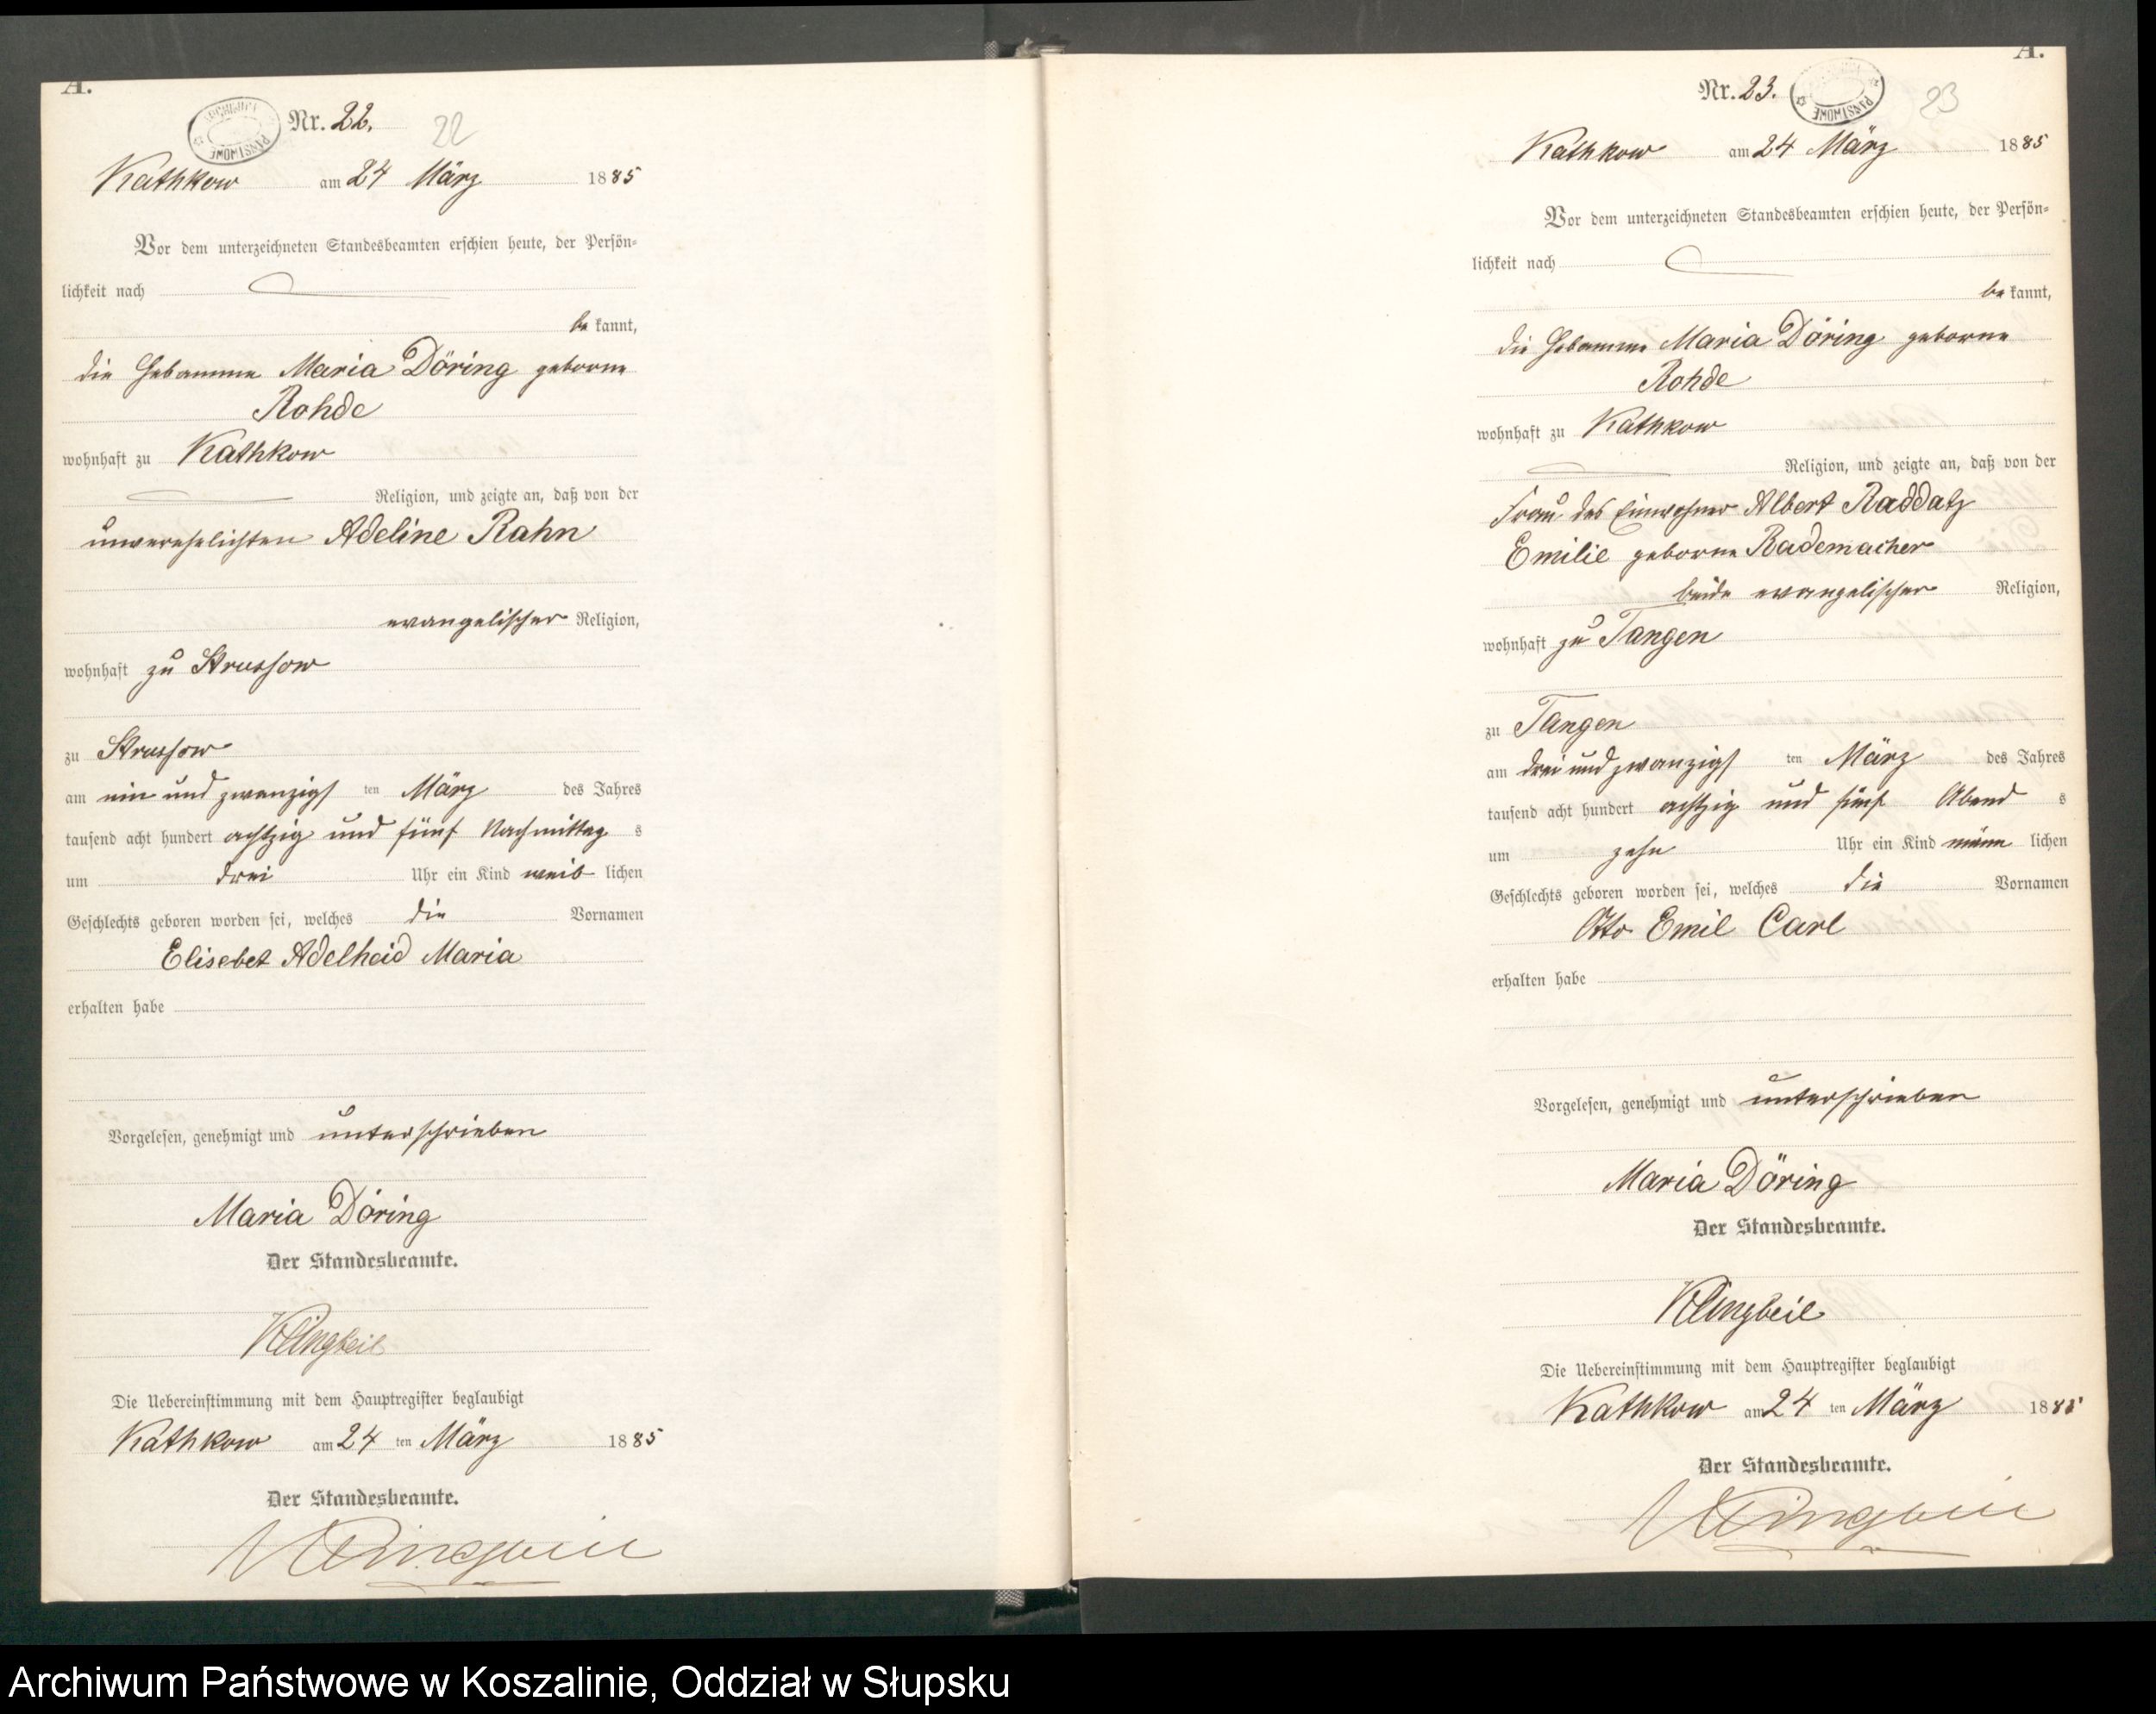 A.
Nr. 22.
22
Kathkow am 24 März 1885
Vor dem unterzeichneten Standesbeamten erschien heute, der Persön-
lichkeit nach
be kannt,
die Hebamme Maria Döring geborne
Rohde
wohnhaft zu Kathkow
Religion, und zeigte an, daß von der
unverehelichten Adeline Rahn
evangelischer Religion,
wohnhaft zu Strussow
zu Strussow
am ein und zwanzigsten März des Jahres
tausend acht hundert achtzig und fünf Nachmittags
um drei Uhr ein Kind weiblichen
Geschlechts geboren worden sei, welches die Vornamen
Elisebet Adelheid Maria
erhalten habe
Vorgelesen, genehmigt und unterschrieben
Maria Döring
Der Standesbeamte.
Klingbeil
Die Uebereinstimmung mit dem Hauptregister beglaubigt
Kathkow am 24 ten März 1885
Der Standesbeamte.
Klingbeil
A.
Nr. 23.
PANSTWOWE
23
Kathkow am 24 März 1885
Vor dem unterzeichneten Standesbeamten erschien heute, der Persön-
lichkeit nach
be kannt,
die Hebamme Maria Döring geborne
Rohde
wohnhaft zu Kathkow
Religion, und zeigte an, daß von der
Frau des Einwohner Albert Raddatz
Emilie geborne Rademacher
beide evangelischer Religion,
wohnhaft zu Tangen
zu Tangen
am drei und zwanzigsten März des Jahres
tausend acht hundert achtzig und fünf Abends
um zehn Uhr ein Kind männlichen
Geschlechts geboren worden sei, welches die Vornamen
Otto Emil Carl
erhalten habe
Vorgelesen, genehmigt und unterschrieben
Maria Döring
Der Standesbeamte.
Klingbeil
Die Uebereinstimmung mit dem Hauptregister beglaubigt
Kathkow am 24 ten März 1885
Der Standesbeamte.
Klingbeil
Archiwum Państwowe w Koszalinie, Oddział w Słupsku